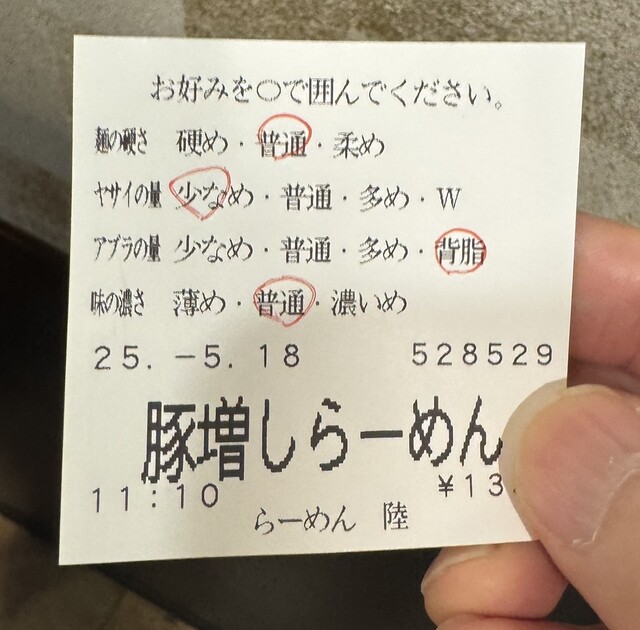 お好みを〇で囲んでください。
麺の硬さ 硬め・普通・柔め
ヤサイの量 少なめ・普通・多め・W
アブラの量 少なめ・普通・多め・背脂
味の濃さ 薄め・普通・濃いめ
25.-5.18 528529
豚増しらーめん
11:10 ¥13
らーめん 陸